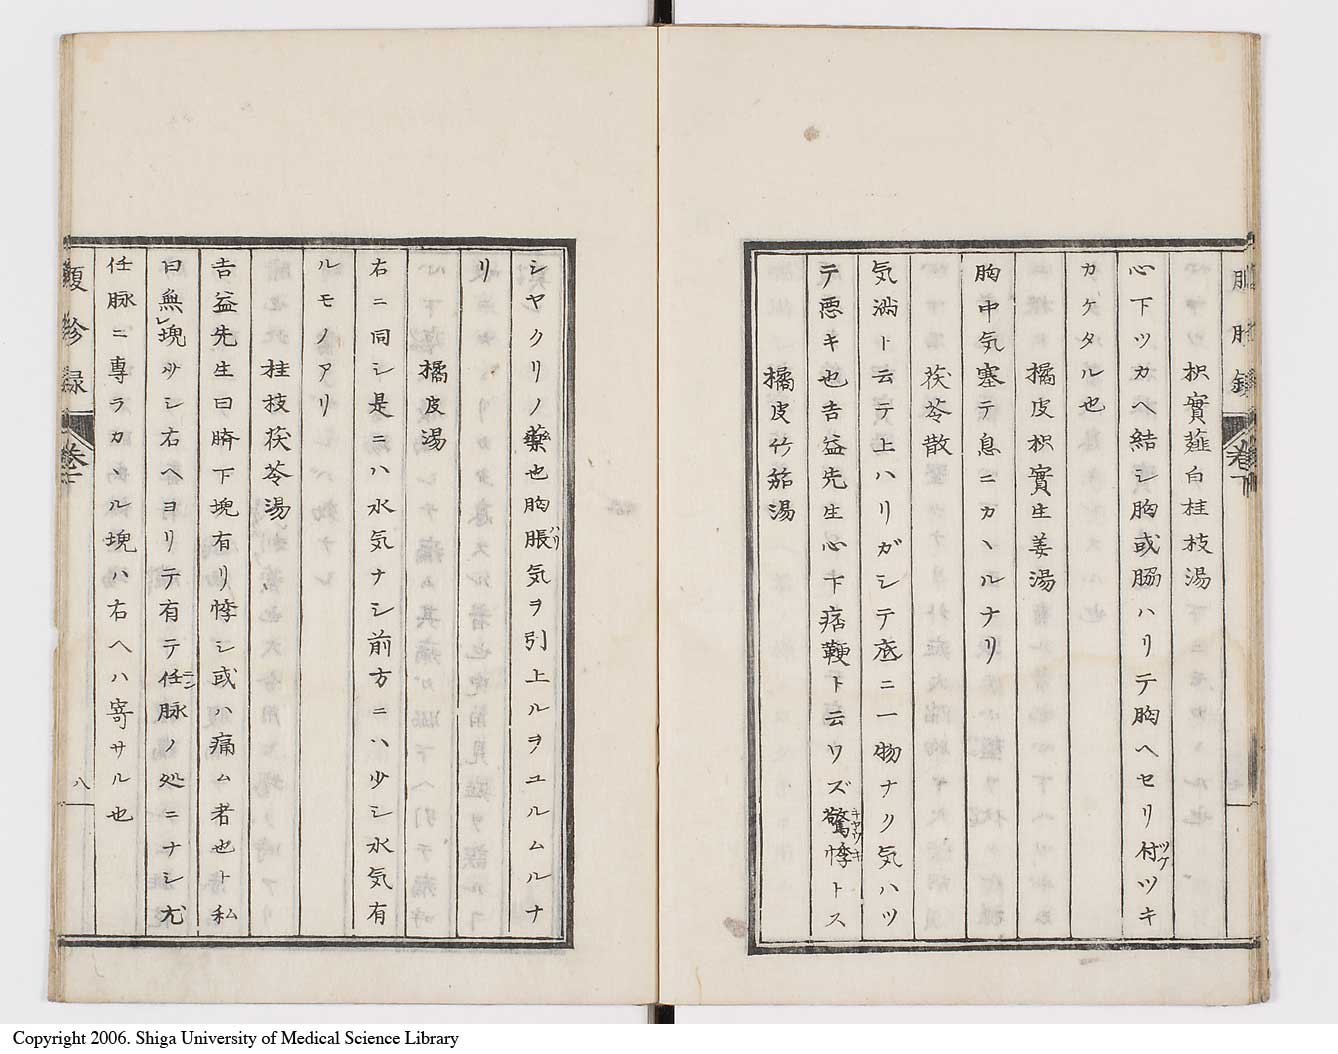 枳實薤白桂枝湯
心下ツカヘ結シ胸或脇ハリテ胸ヘセリ付ツケツキ
カケタル也
橘皮枳實生姜湯
胸中気塞テ息ニカヽルナリ
茯苓散
気満ト云テ上ハリガシテ底ニ一物ナク気ハツ
テ悪キ也吉益先生心下痞鞕ト云ワズ驚悸キヤウキトス
橘皮竹筎湯
シヤクリノ藥也胸脹ハリ気ヲ引上ルヲユルムルナ
リ
橘皮湯
右ニ同シ是ニハ水気ナシ前方ニハ少シ水気有
ルモノアリ
桂枝茯苓湯
吉益先生曰臍下塊有リ悸シ或ハ痛ム者也ト私
曰無レ塊少シ右ヘヨリテ有テ任ニン脉ノ処ニナシ尤
任脉ニ專ラカヽル塊ハ右ヘハ寄サル也
診録
卷一
八
Copyright 2006. Shiga University of Medical Science Library